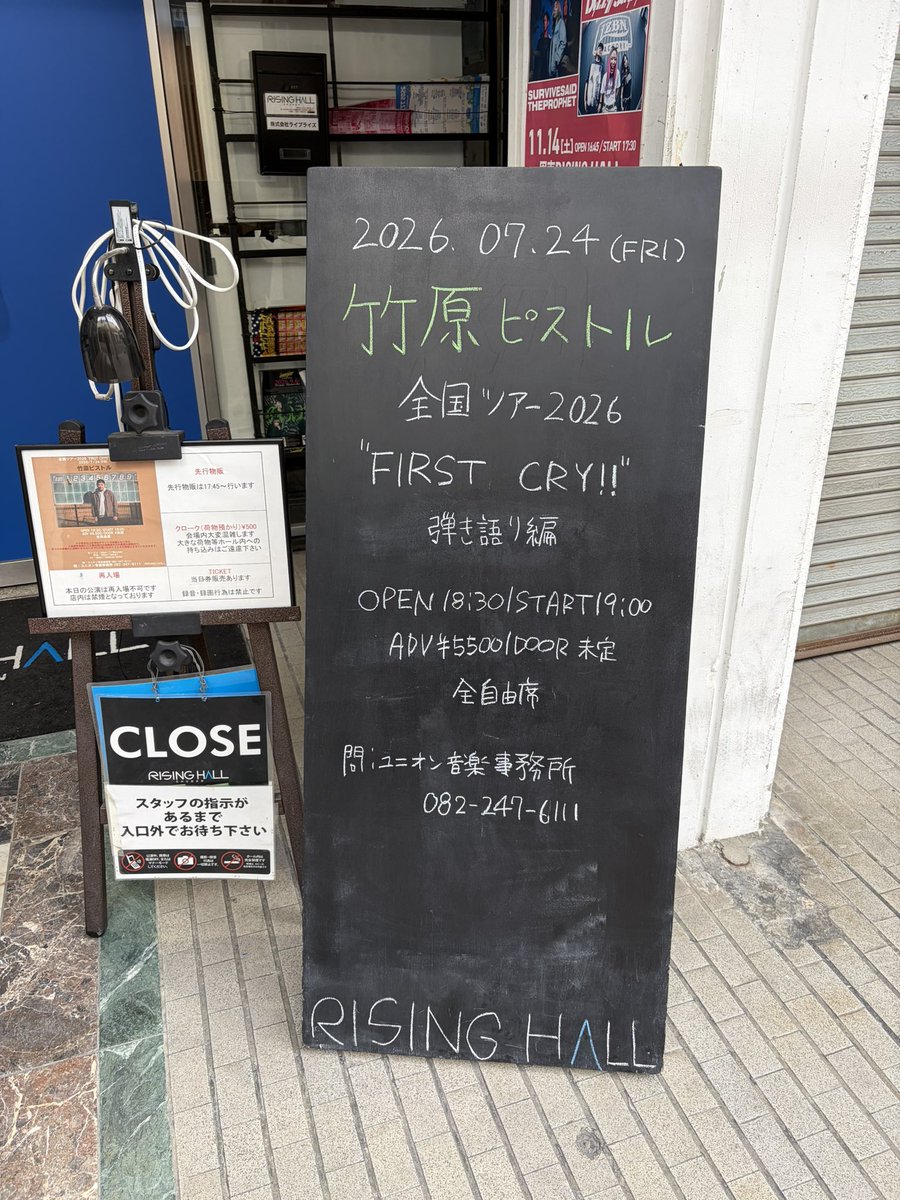 RISING HALL
株式会社ライブライズ
SURVIVESAID
THEPROPHET
11.14[土] OPEN 16:45 / START 17:30
2026. 07.24 (FRI)
竹原ピストル
全国ツアー2026
"FIRST CRY!!"
弾き語り編
OPEN18:30/START19:00
ADV¥5500/DOOR 未定
全自由席
問:ユニオン音楽事務所
082-247-6111
RISING HALL
竹原ピストル
先行物販
先行物販は17:45~行います
クローク(荷物預かり)¥500
会場内大変混雑します
大きな荷物等ホール内への
持ち込みはご遠慮下さい
再入場
本日の公演は再入場不可です
店内は禁煙となっております
TICKET
当日券販売あります
録音・録画行為は禁止です
CLOSE
RISING HALL
スタッフの指示が
あるまで
入口外でお待ち下さい